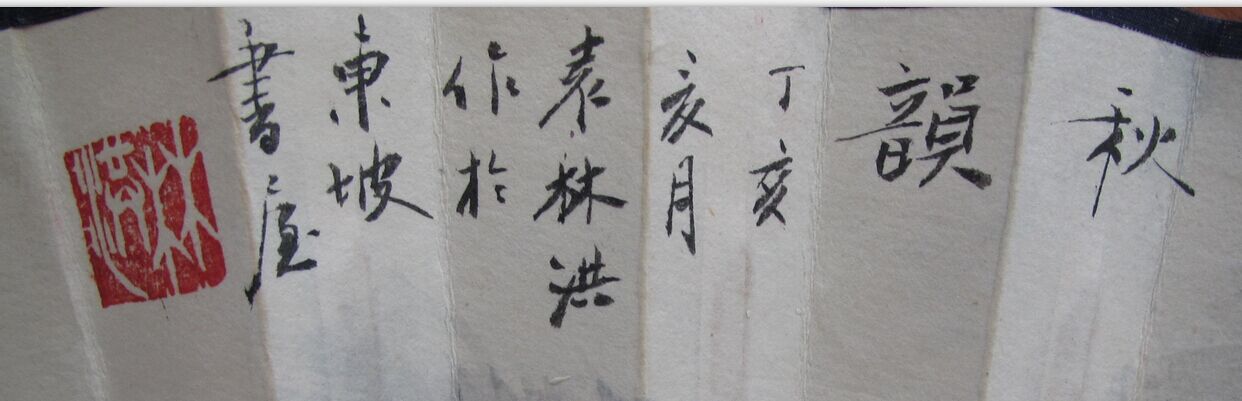 秋
韻
丁亥
亥月
袁林洪
作於
東坡
書屋
林洪